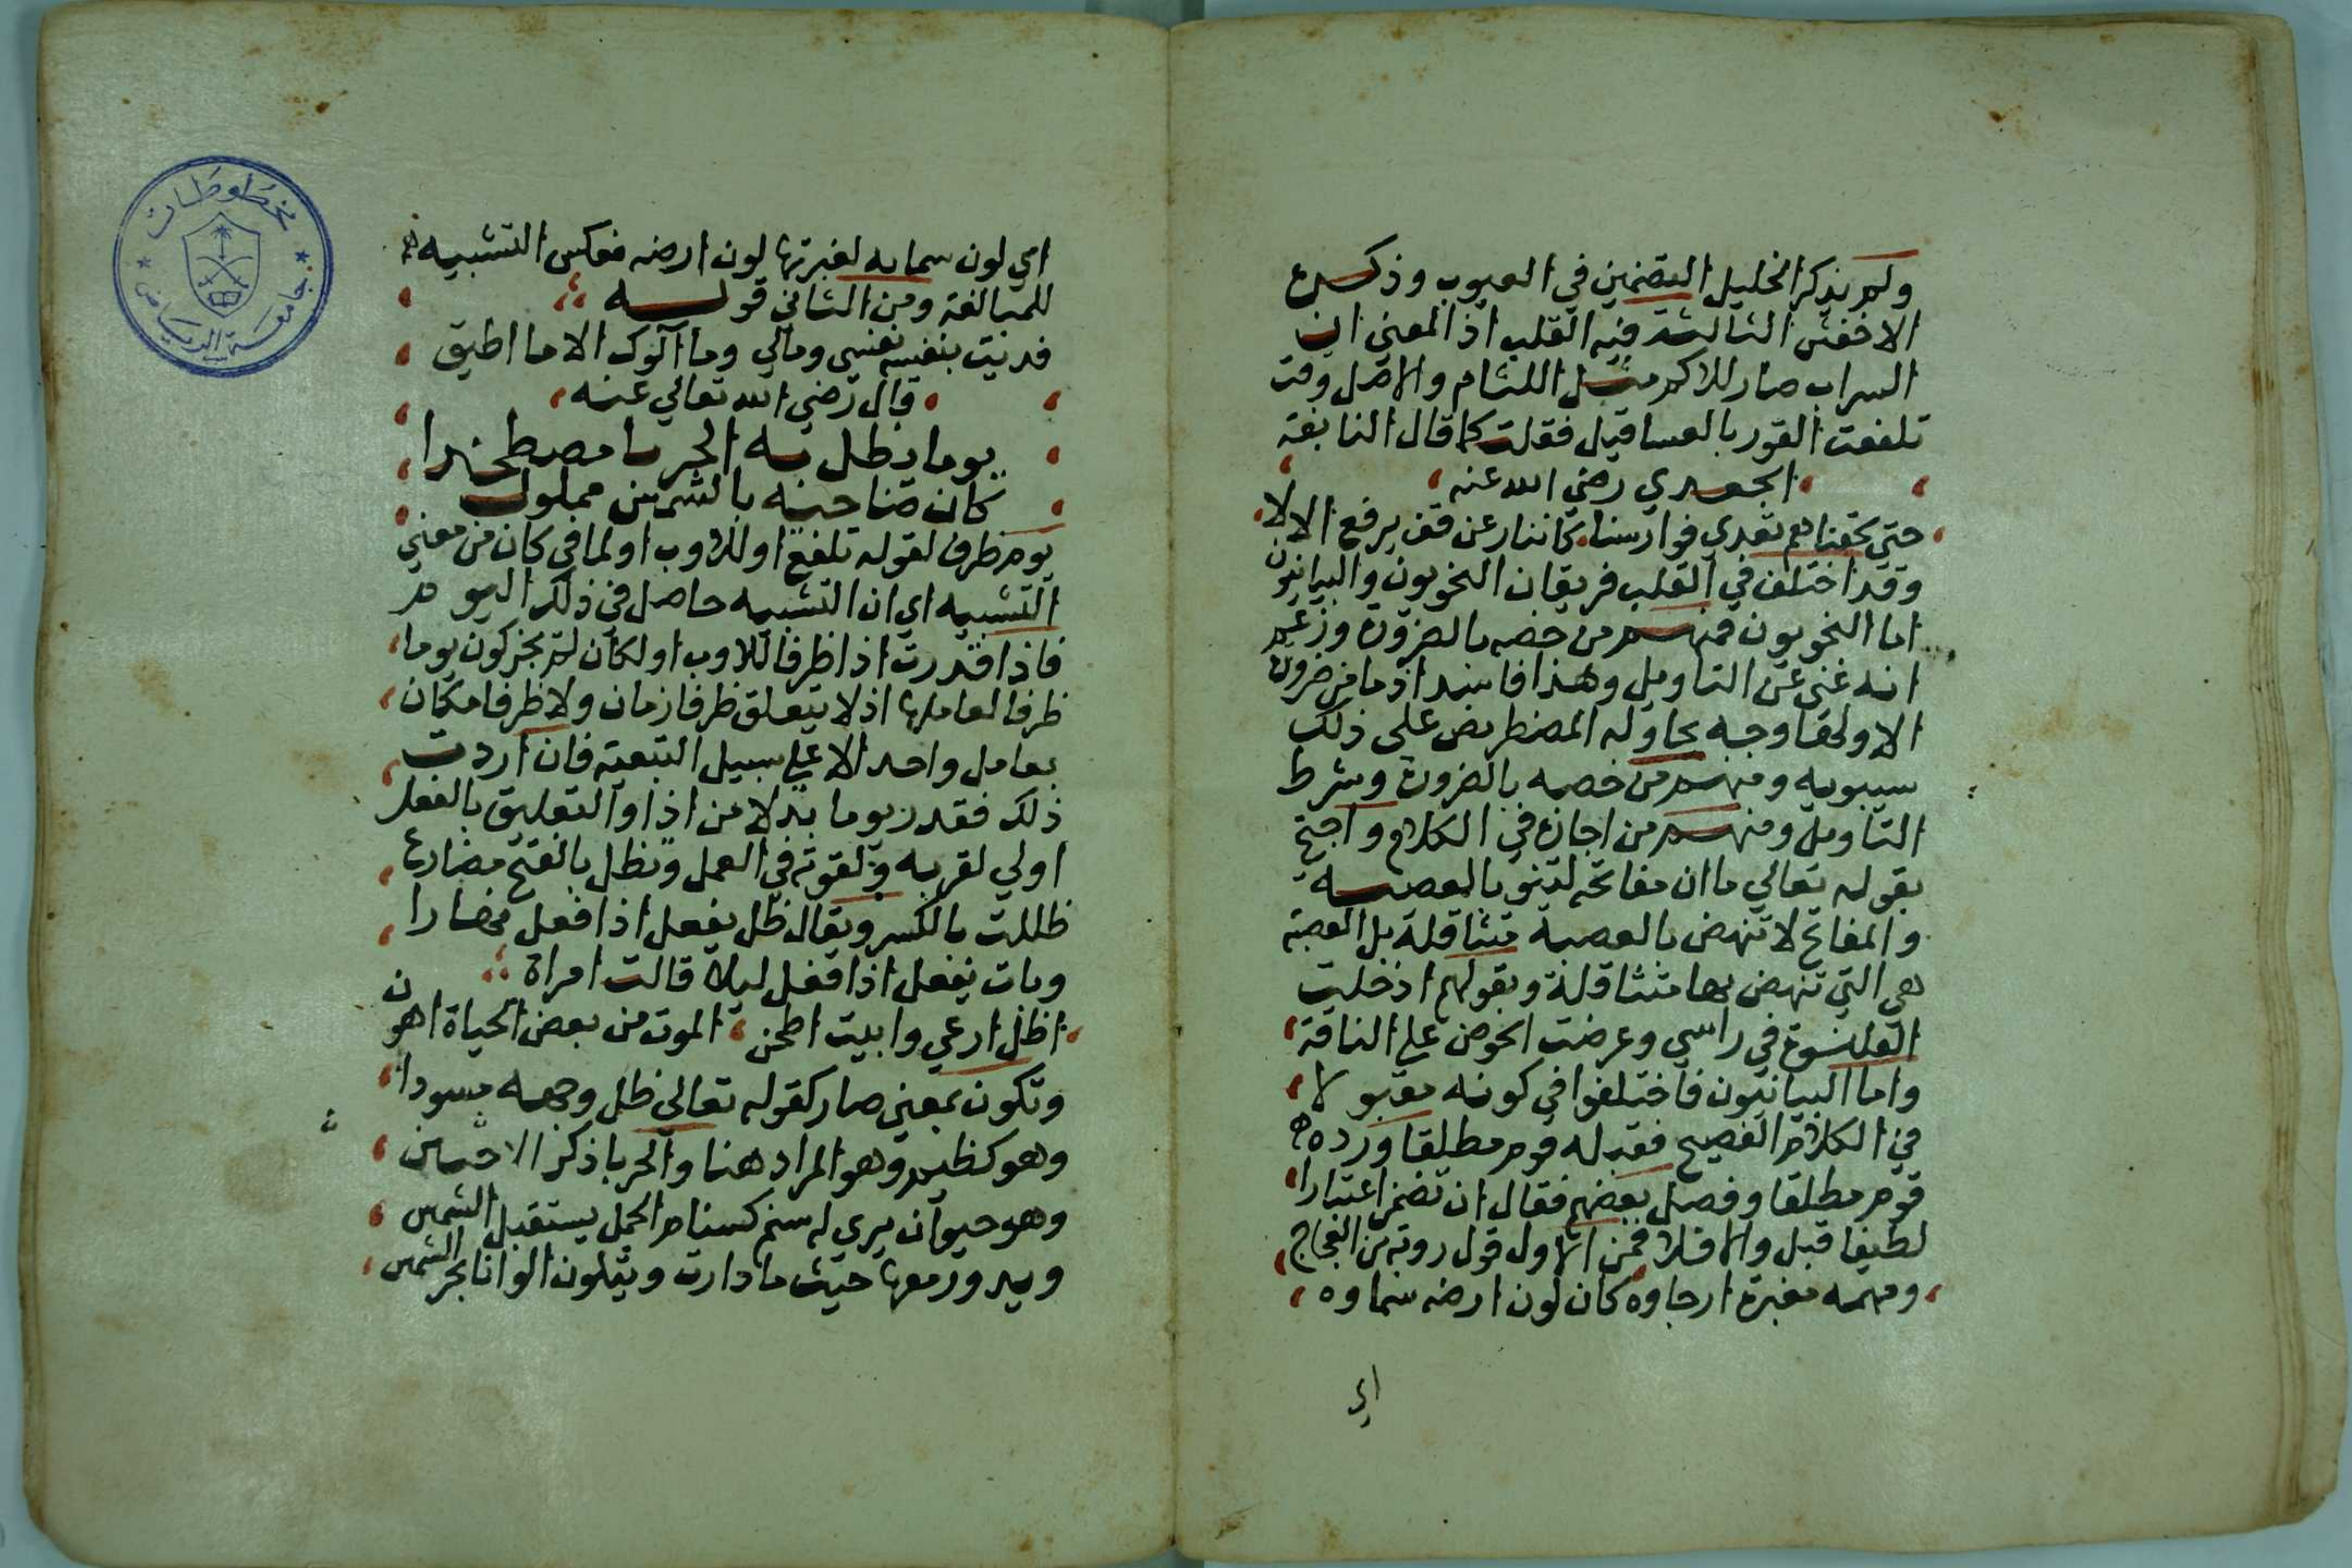 ولم يذكر الخليل التضمين في العيوب وذكره
الاخفش الثالثة فيه القلب اذ المعني ان
السراب صار للاكم مثل اللثام والاصل وقت
تلفعت القور بالعساقيل فقلت كما قال النابغة
الجعدي رضي الله عنه
حتي لحقناهم تعدي فوارسنا كاننا رعن قف يرفع الالا
وقد اختلف في القلب فريقان النحويون والبيانيون
اما النحويون فمنهم من خصه بالضرورة وزعم
انه غني عن التاويل وهذا فاسد اذ ما من ضرورة
الا ولها وجه يحاوله المضطر نص علي ذلك
سيبويه ومنهم من خصه بالضرورة وشرط
التاويل ومنهم من اجازه في الكلام واحتج
بقوله تعالي ما ان مفاتحه لتنو بالعصبه
والمفاتح لا تنهض بالعصبة متثاقلة بل العصبة
هي التي تنهض بها متثاقلة وبقولهم ادخلت
القلنسوة في راسي وعرضت الحوض علي الناقة
واما البيانيون فاختلفوا في كونه مقبولا
في الكلام الفصيح فقبله قوم مطلقا ورده
قوم مطلقا وفصل بعضهم فقال ان تضمن اعتبارا
لطيفا قبل والا فلا فمن الاول قول روبة بن العجاج
ومهمه مغبرة ارجاوه كان لون ارضه سماوه
اي
اي لون سمايه لغبرتها لون ارضه فعكس التشبيه
للمبالغة ومن الثاني قوله
فديت بنفسه نفسي ومالي وما آلوك الا ما اطيق
قال رضي الله تعالي عنه
يوما يظل به الحربا مصطخدا
كان ضاحيه بالشمس مملول
يوم ظرف لقوله تلفع او للاوب او لما في كان من معني
التشبيه اي ان التشبيه حاصل في ذلك اليوم
فاذا قدرت اذا ظرفا للاوب او لكان لم يجز كون يوما
ظرفا لعاملها اذ لا يتعلق ظرفا زمان ولا ظرفا مكان
بعامل واحد الا علي سبيل التبعية فان اردت
ذلك فقدر يوما بدلا من اذا والتعليق بالفعل
اولي لقربه ولقوته في العمل ويظل بالفتح مضارع
ظللت بالكسر ويقال ظل يفعل اذا فعل نهارا
وبات يفعل اذا فعل ليلا قالت امراة
اظل ارعي وابيت اطحن الموت من بعض الحياة اهون
وتكون بمعني صار كقوله تعالي ظل وجهه مسودا
وهو كظيم وهو المراد هنا والحربا ذكر الاحبين
وهو حيوان يري له سنم كسنام الجمل يستقبل الشمس
ويدور معها حيث ما دارت ويتلون الوانا بحر الشمس
مخطوطات
جامعة الرياض